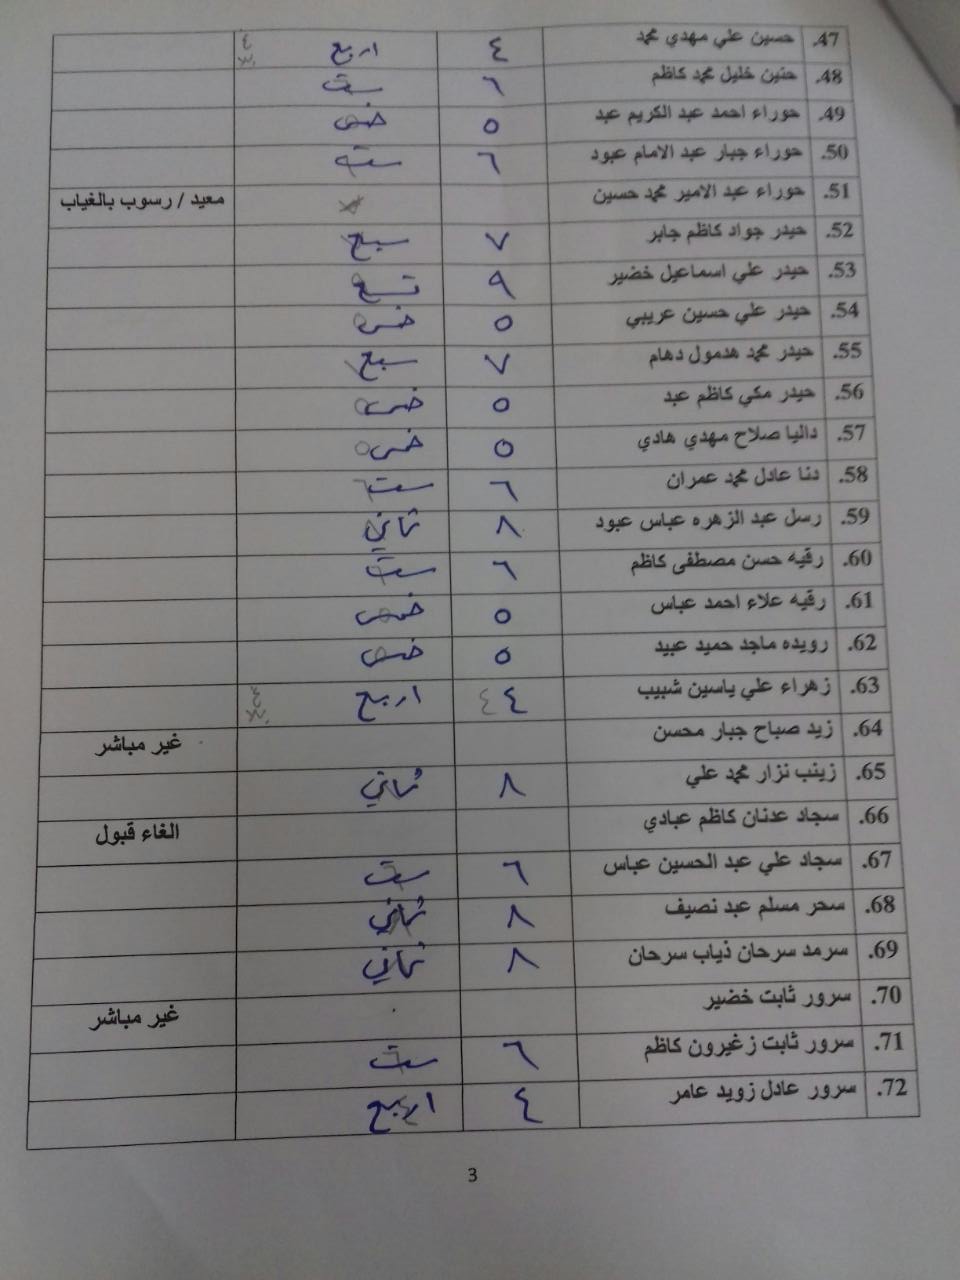 47. حسين علي مهدي محمد ٤ اربع ٤
48. حنين خليل محمد كاظم ٦ ست
49. حوراء احمد عبد الكريم عبد ٥ خمس
50. حوراء جبار عبد الامام عبود ٦ ست
51. حوراء عبد الامير محمد حسين معيد / رسوب بالغياب
52. حيدر جواد كاظم جابر ٧ سبع
53. حيدر علي اسماعيل خضير ٩ تسع
54. حيدر علي حسين عريبي ٥ خمس
55. حيدر محمد هدمول دهام ٧ سبع
56. حيدر مكي كاظم عبد ٥ خمس
57. داليا صلاح مهدي هادي ٥ خمس
58. دنا عادل محمد عمران ٦ ست
59. رسل عبد الزهره عباس عبود ٨ ثماني
60. رقيه حسن مصطفى كاظم ٦ ست
61. رقيه علاء احمد عباس ٥ خمس
62. رويده ماجد حميد عبيد ٥ خمس
63. زهراء علي ياسين شبيب ٤ ٤ اربع
64. زيد صباح جبار محسن غير مباشر
65. زينب نزار محمد علي ٨ ثماني
66. سجاد عدنان كاظم عبادي الغاء قبول
67. سجاد علي عبد الحسين عباس ٦ ست
68. سحر مسلم عبد نصيف ٨ ثماني
69. سرمد سرحان ذياب سرحان ٨ ثماني
70. سرور ثابت خضير غير مباشر
71. سرور ثابت زغيرون كاظم ٦ ست
72. سرور عادل زويد عامر ٤ اربع
3